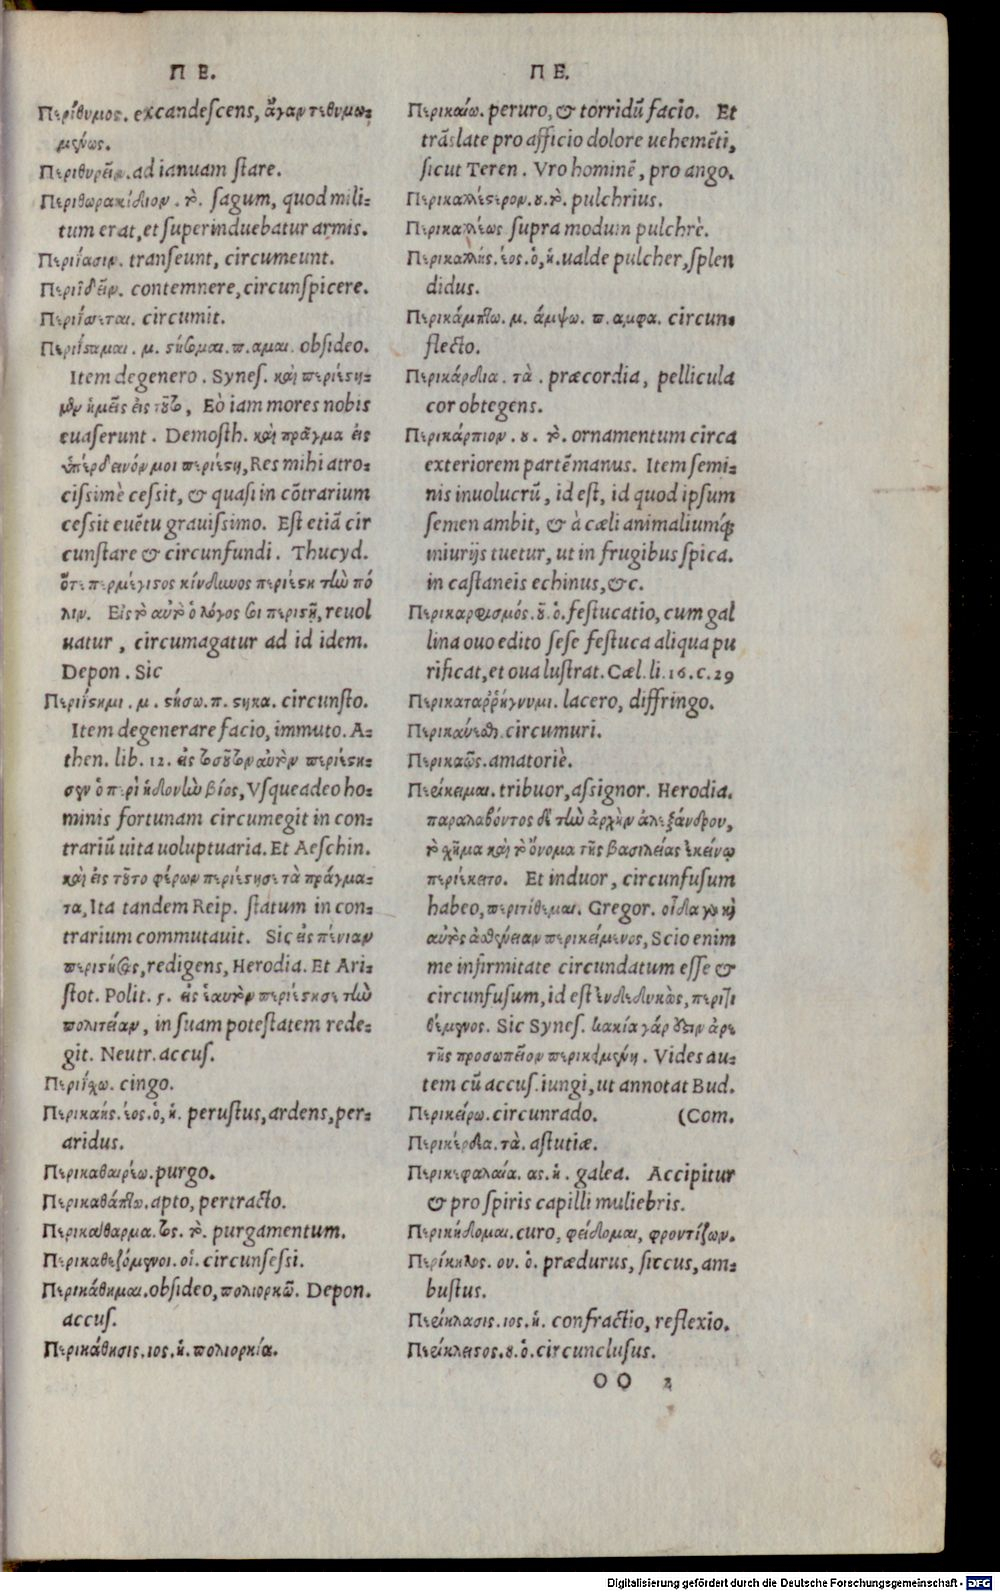 Π Ε.
Περίθυμος. excandeſcens, ἄγαν τεθυμω=
μένως.
Περιθυρεῖν. ad ianuam ſtare.
Περιθωρακίδιον. τὸ. ſagum, quod mili=
tum erat, et ſuperinduebatur armis.
Περιΐασιν. tranſeunt, circumeunt.
Περιϊδεῖν. contemnere, circunſpicere.
circumit.
Περιΐσαμαι. μ. obſideo.
Item degenero. Syneſ. καὶ περιέστη=
μεν ἡμεῖς εἰς τοῦτο, Eò iam mores nobis
euaſerunt. Demoſth. καὶ πρᾶγμα εἰς
ὑπέρδεινόν μοι περιέστη, Res mihi atro=
ciſsimè ceſsit, & quaſi in cõtrarium
ceſsit euẽtu grauiſsimo. Eſt etiã cir
cunſtare & circunfundi. Thucyd.
ὅτε περ μέγιστος κίνδυνος περιέστη τὴν πό
λιν. Εἰς τὸ αὐτὸ ὁ λόγος σοι περιστῇ, reuol
uatur, circumagatur ad id idem.
Depon. Sic
Περιΐστημι. μ. στήσω. π. στηκα. circunſto.
Item degenerare facio, immuto. A=
then. lib. 12. εἰς τοσοῦτον αὐτὸν περιέστη=
σεν ὁ περὶ ἡδονὴν βίος, Vſqueadeo ho=
minis fortunam circumegit in con=
trariũ uita uoluptuaria. Et Aeſchin.
καὶ εἰς τοῦτο φέρων περιέστησε τὰ πράγμα=
τα, Ita tandem Reip. ſtatum in con=
trarium commutauit. Sic εἰς πενίαν
περιστήσας, redigens, Herodia. Et Ari=
ſtot. Polit. 5. εἰς ἑαυτὸν περιέστησε τὴν
πολιτείαν, in ſuam poteſtatem rede=
git. Neutr. accuſ.
Περιΐχω. cingo.
Περικαής. έος. ὁ, ἡ. peruſtus, ardens, per=
aridus.
Περικαθαιρέω. purgo.
Περικαθάπτω. apto, pertracto.
Περικάθαρμα. τος. τὸ. purgamentum.
Περικαθεζόμενοι. οἱ. circunſeſsi.
Περικάθημαι. obſideo, πολιορκῶ. Depon.
accuſ.
Περικάθησις. ιος. ἡ. πολιορκία.
Π Ε.
Περικαίω. peruro, & torridũ facio. Et
trãſlate pro afficio dolore uehemẽti,
ſicut Teren. Vro hominẽ, pro ango.
Περικαλλέστερον. ου. τὸ. pulchrius.
Περικαλλέως ſupra modum pulchrè.
Περικαλλής. έος. ὁ, ἡ. ualde pulcher, ſplen
didus.
Περικάμπτω. μ. άμψω. π. αμφα. circun=
flecto.
Περικάρδια. τὰ. præcordia, pellicula
cor obtegens.
Περικάρπιον. ου. τὸ. ornamentum circa
exteriorem partẽ manus. Item ſemi=
nis inuolucrũ, id eſt, id quod ipſum
ſemen ambit, & à cæli animaliumq́ꝫ
iniurijs tuetur, ut in frugibus ſpica.
in caſtaneis echinus, &c.
Περικαρφισμός. οῦ. ὁ. feſtucatio, cum gal
lina ouo edito ſeſe feſtuca aliqua pu
rificat, et oua luſtrat. Cæl. li. 16. c. 29
Περικαταῤῥήγνυμι. lacero, diffringo.
Περικαίεσθαι circumuri.
Περικαῶς. amatoriè.
Περίκειμαι. tribuor, aſsignor. Herodia.
παραλαβόντος δὲ τὴν ἀρχὴν ἀλεξάνδρου,
τὸ σχῆμα καὶ τὸ ὄνομα τῆς βασιλείας ἐκείνῳ
περιέκειτο. Et induor, circunfuſum
habeo, περιτίθεμαι. Gregor. οἶδα γὰρ καὶ
αὐτὸς ἀσθένειαν περικείμενος, Scio enim
me infirmitate circundatum eſſe &
circunfuſum, id eſt ἐνδεδυκὼς, περιτι
θέμενος. Sic Syneſ. κακία γάρ ὅστιν ἀρε
τῆς προσωπεῖον περικειμένη. Vides au=
tem cũ accuſ. iungi, ut annotat Bud.
Περικείρω. circunrado. (Com.
Περικέρδια. τὰ. aſtutiæ.
Περικεφαλαία. ας. ἡ. galea. Accipitur
& pro ſpiris capilli muliebris.
Περικήδομαι. curo, φείδομαι, φροντίζων.
Περίκηλος. ου. ὁ. prædurus, ſiccus, am=
buſtus.
Περίκλασις. ιος. ἡ. confractio, reflexio.
Περίκλειστος. ου. ὁ. circuncluſus.
OO 2
Digitalisierung gefördert durch die Deutsche Forschungsgemeinschaft - DFG